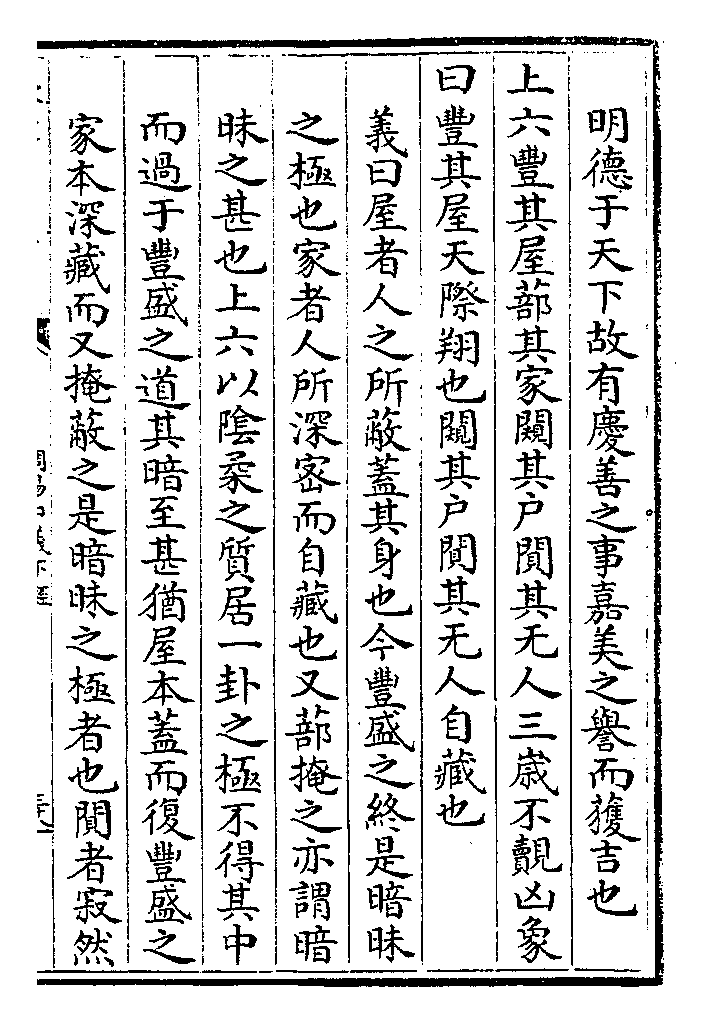 明德于天下故有慶善之事嘉美之譽而獲吉也
上六豐其屋蔀其家闚其户闃其无人三歳不覿凶象
曰豐其屋天際翔也闚其户闃其无人自藏也
義曰屋者人之所蔽蓋其身也今豐盛之終是暗昧
之極也家者人所深宻而自藏也又蔀掩之亦謂暗
昧之甚也上六以陰柔之質居一卦之極不得其中
而過于豐盛之道其暗至甚猶屋本蓋而復豐盛之
家本深藏而又掩蔽之是暗昧之極者也闃者寂然